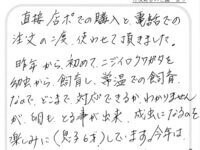 直接店ポでの購入と電話での
注文の二度、使わせて頂きました。
昨年から、初めて、ニジイロクワガタを
幼虫から、飼育し、常温での飼育
なので、どこまで対応できるかわかりません
が、6月もとる事が出来、成虫になるのを
楽しみに(息子6才)しています。今年は、